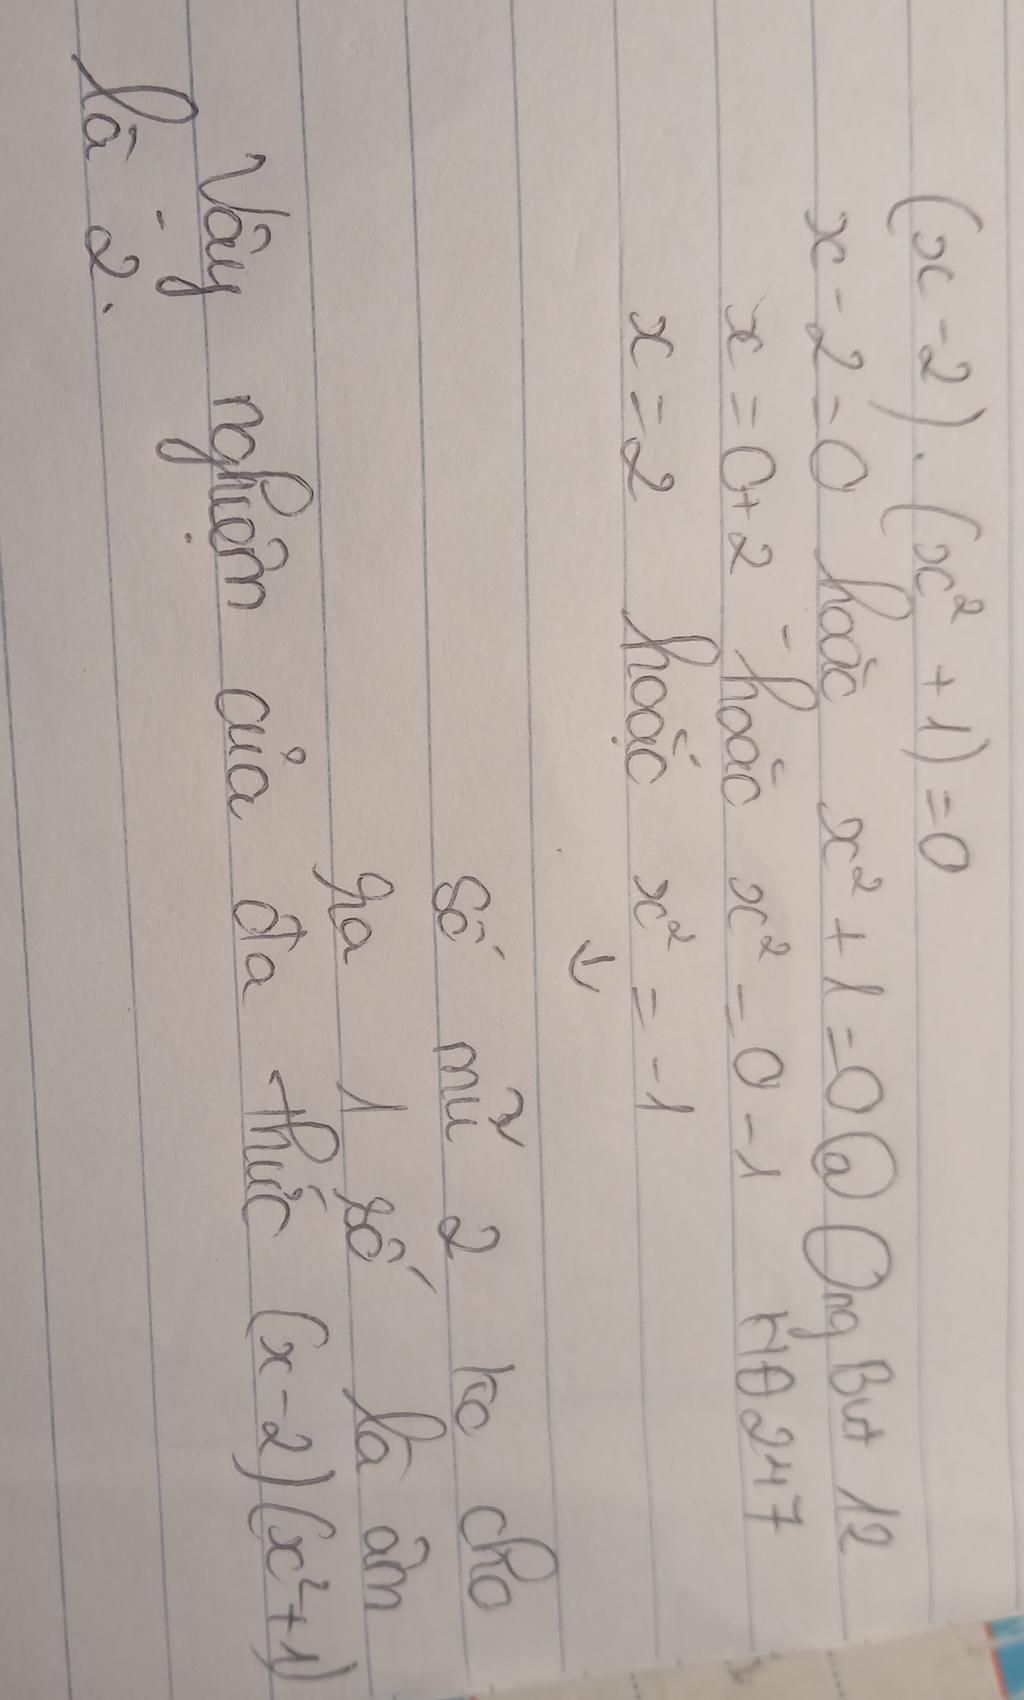 (x - 2) . (x² + 1) = 0
x - 2 = 0 hoặc x² + 1 = 0 @ Ong But 12
x = 0 + 2 hoặc x² = 0 - 1 HĐ 247
x = 2 hoặc x² = -1
↓
số mũ 2 ko cho
ra 1 số là âm
Vậy nghiệm của đa thức (x - 2) (x² + 1)
là 2.